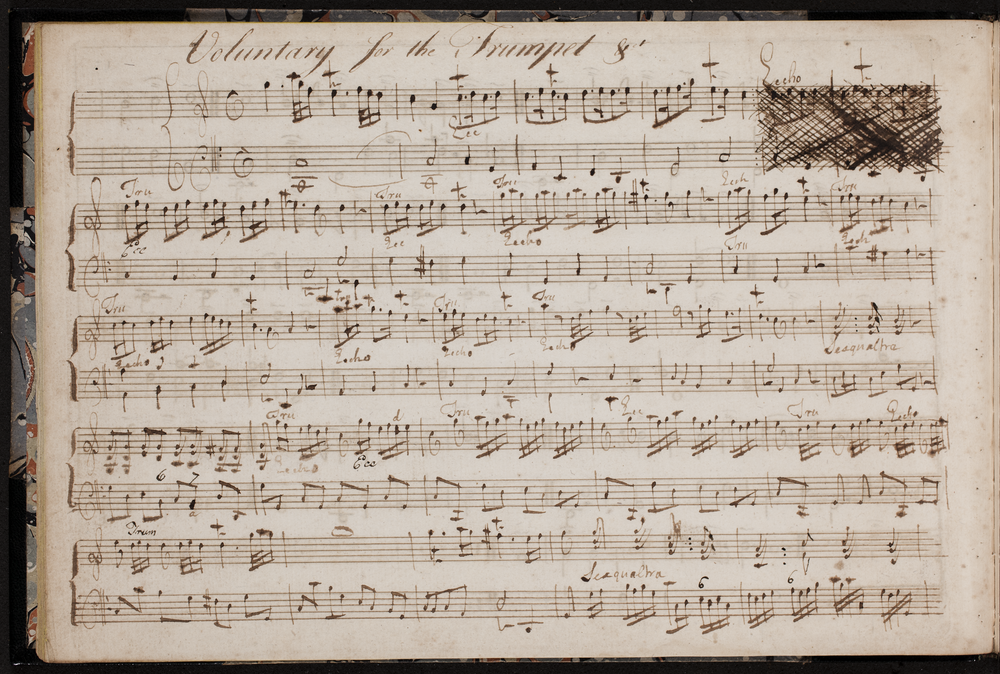 Voluntary for the Trumpet &c
Eccho
Ecc
Tru Tru Tru Ecch Tru
Ecc Ecc Eccho Tru Ecch
Tru Tru Tru Tru
Eccho Eccho Eccho Eccho Seaqualtra
Tru d Tru Ecc Tru Eccho
Eccho Ecc
6 7
Trum
Seaqualtra
6 6